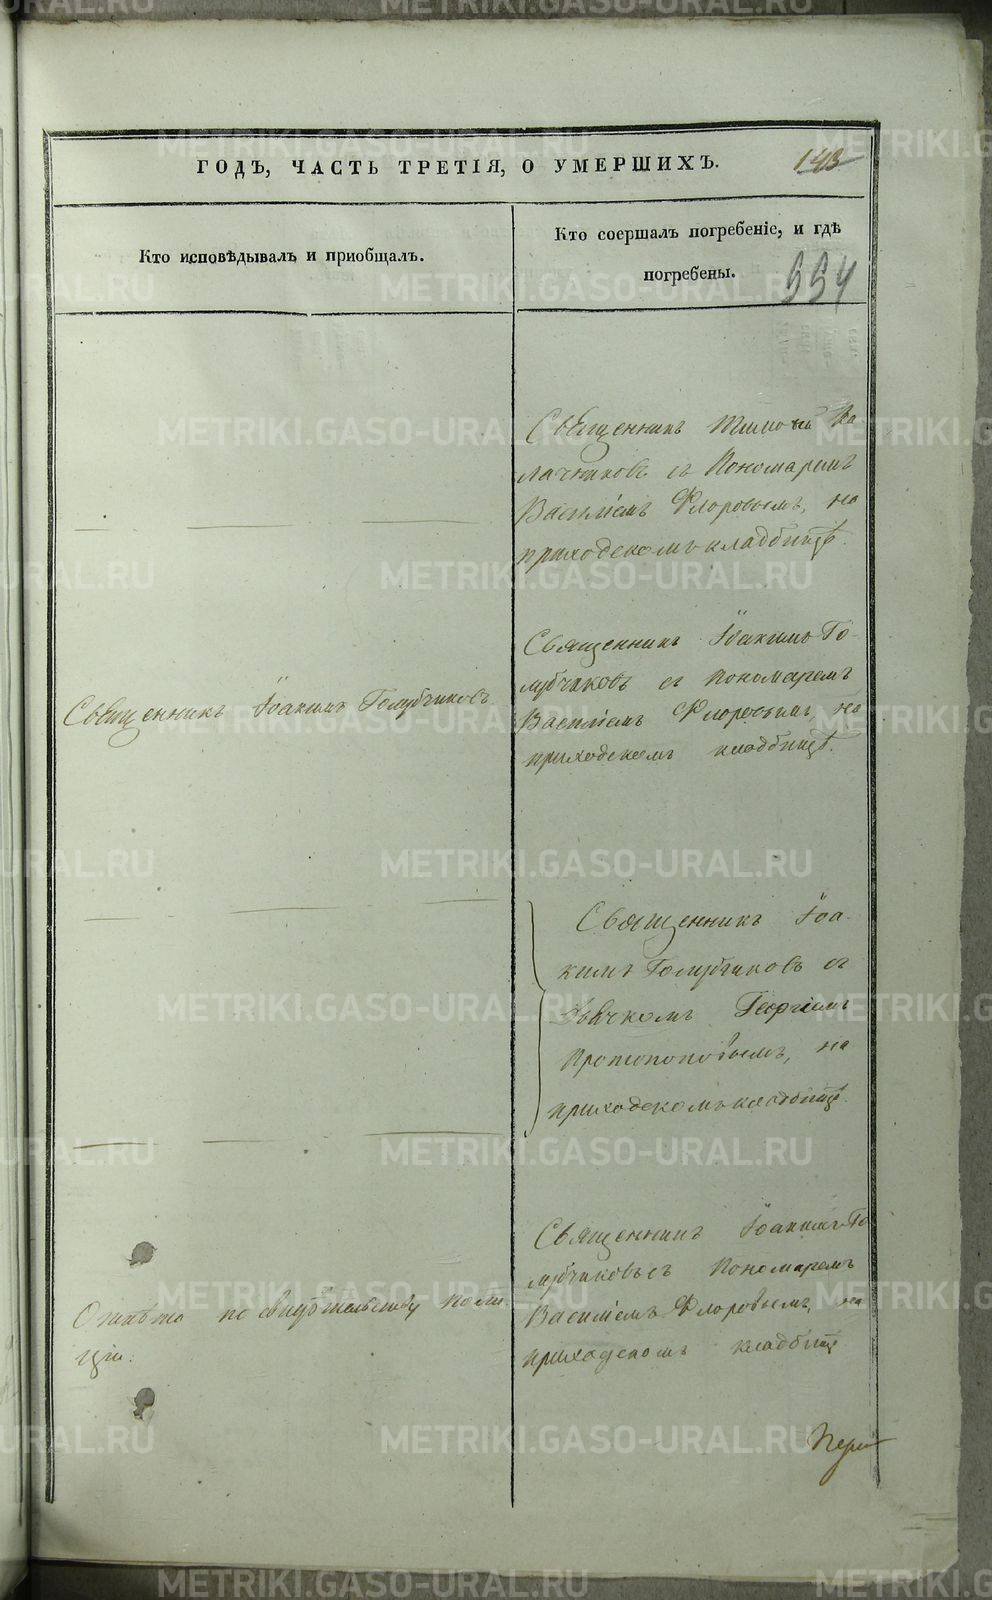 ГОДЪ, ЧАСТЬ ТРЕТІЯ, О УМЕРШИХЪ.
143
Кто исповѣдывалъ и приобщалъ.
Кто соершалъ погребеніе, и гдѣ
погребены.
554
Священникъ Ка
лачниковъ съ Пономаремъ
Василіемъ Флоровымъ, на
приходскомъ кладбищѣ.
Священникъ Іоакимъ Голубчиковъ
Священникъ Іоакимъ Го-
лубчиковъ съ Пономаремъ
Василіемъ Флоровымъ, на
приходскомъ кладбищѣ.
Священникъ Іоа
кимъ Голубчиковъ съ
Дьячкомъ Георгіемъ
Протопоповымъ, на
приходскомъ кладбищѣ.
Отпѣта по свидѣтельству поли
ціи.
Священникъ Іоакимъ Го
лубчиковъ съ Пономаремъ
Василіемъ Флоровымъ, на
приходскомъ кладбищѣ
METRIKI.GASO-URAL.RU